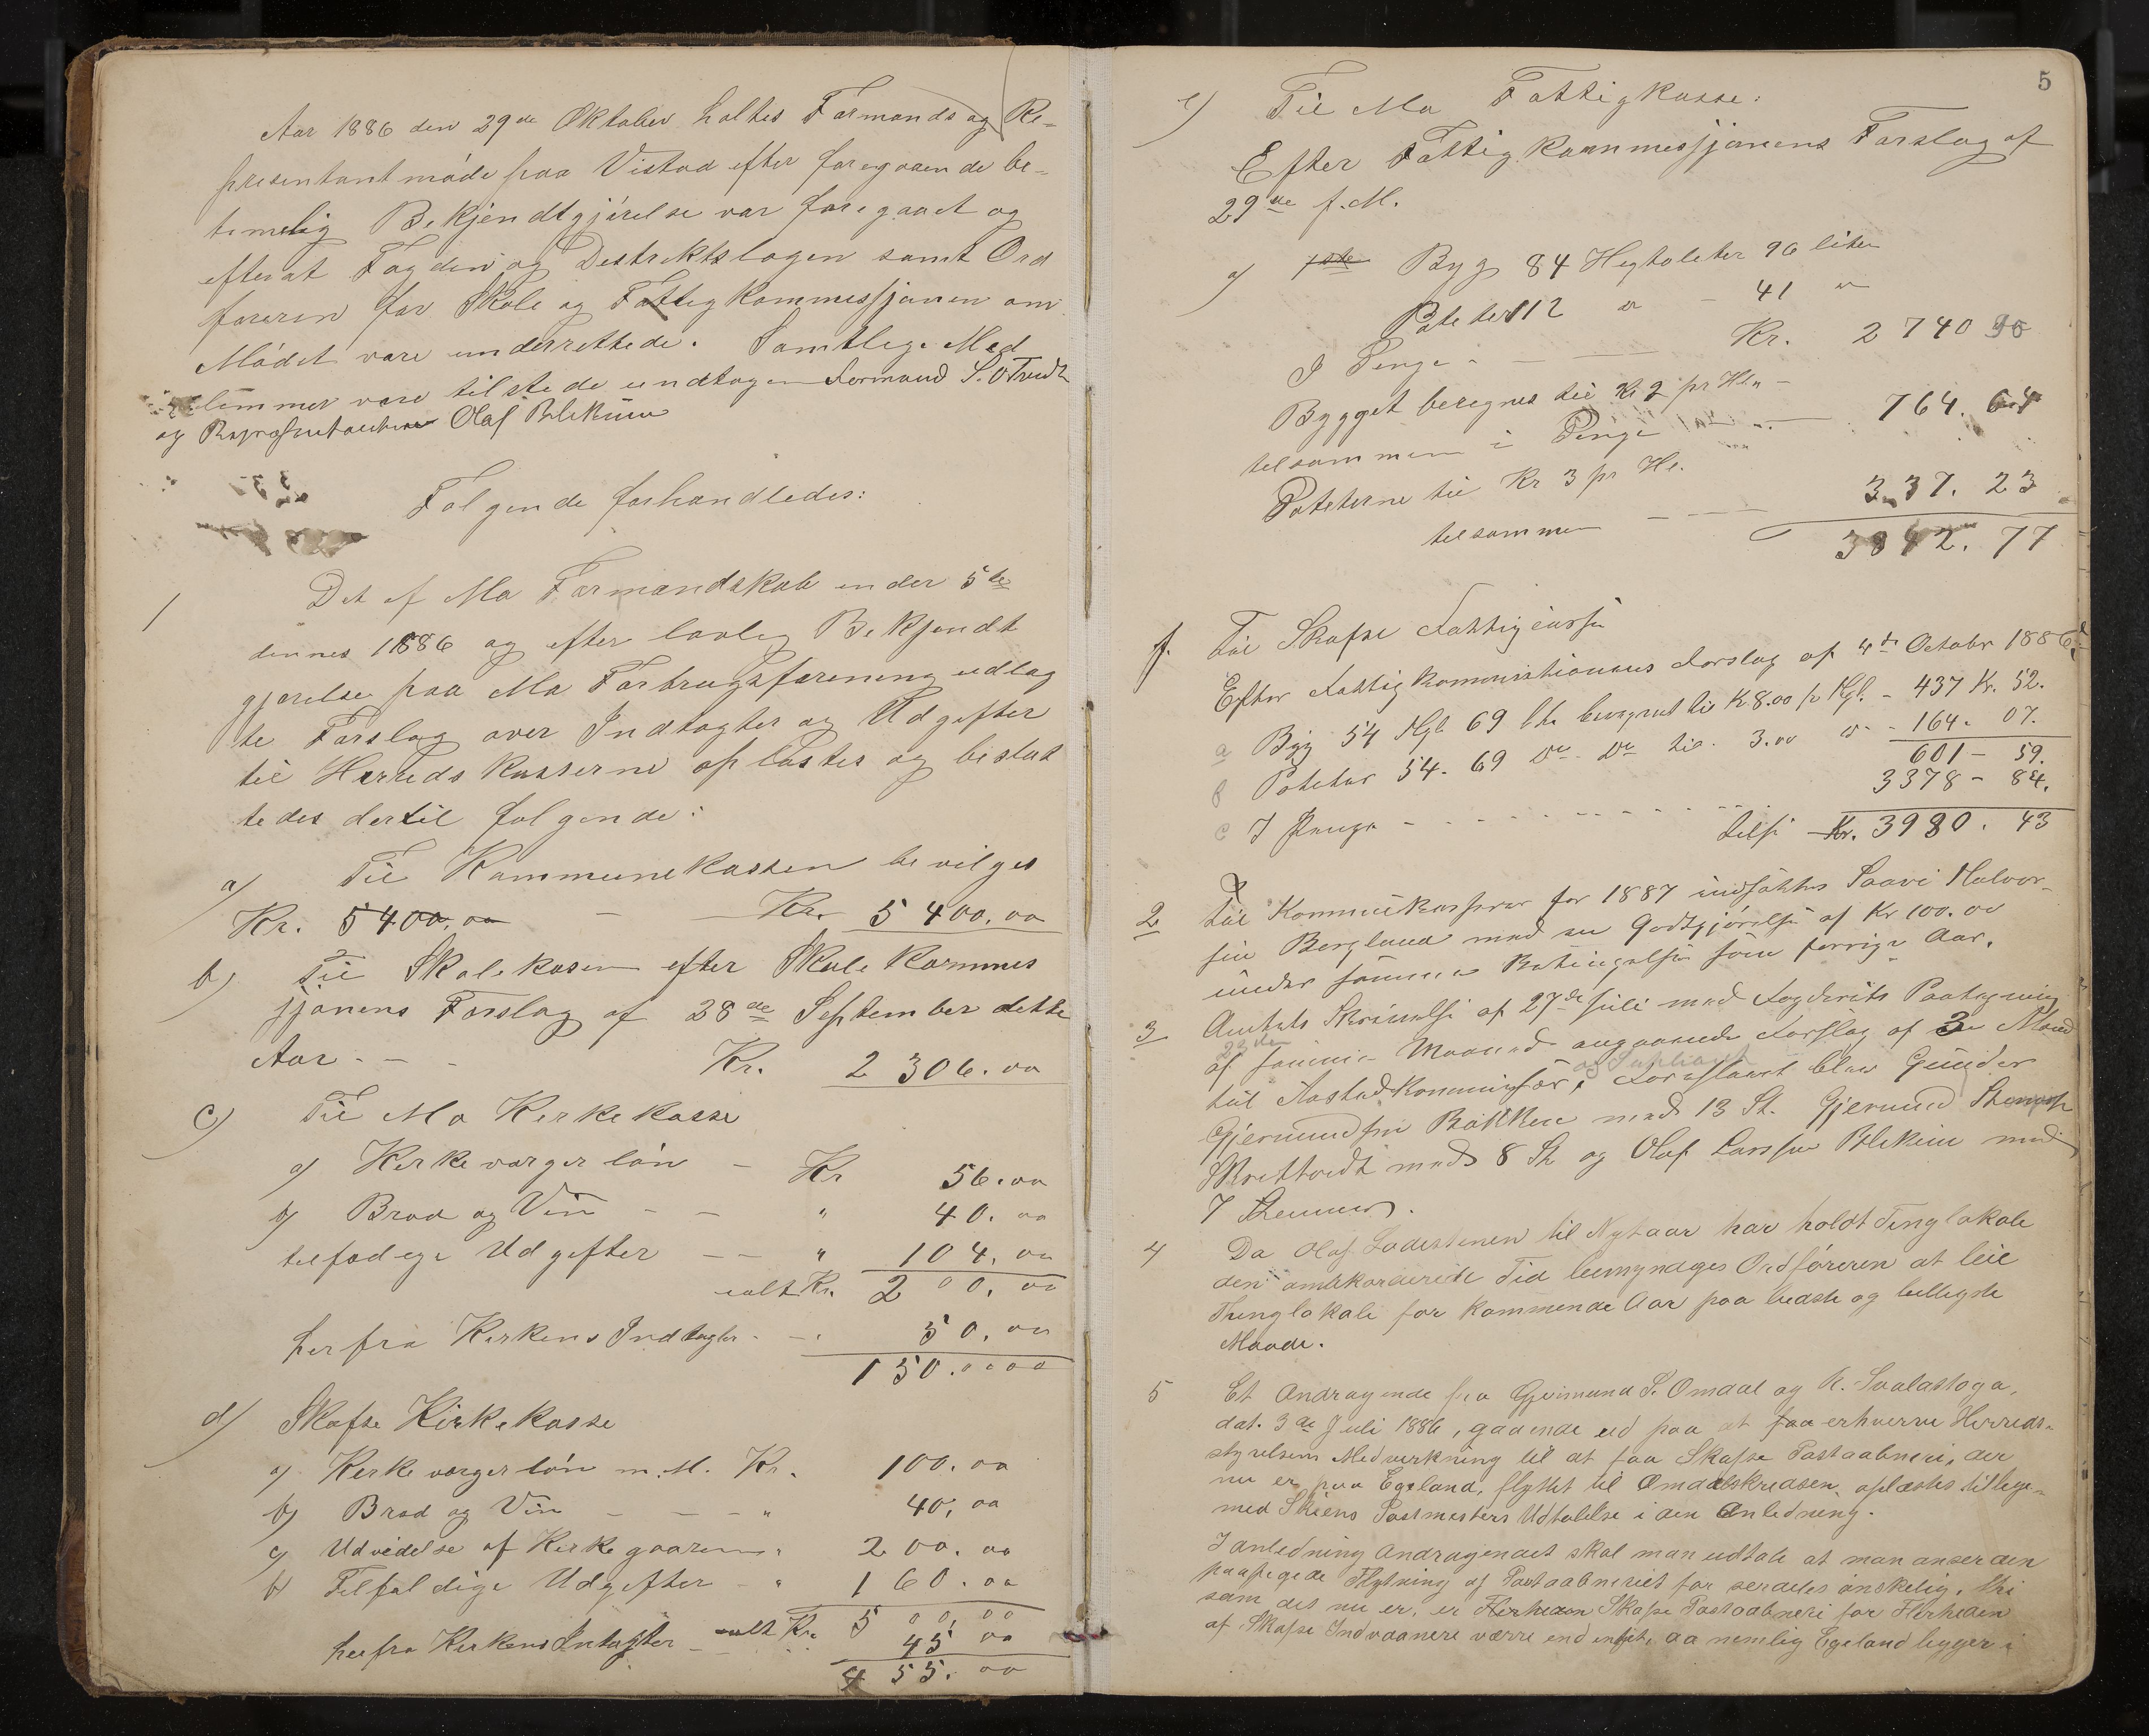 Aar 1886 den 29de Oktober holtes Formands og Re-
presentantmøde paa Vistad efter foregaaende be-
timelig Bekjendtgjørelse var foregaaet og
efterat Fogden og Destriktslægen samt Ord
føreren for Skole og Fattigkommessjonen om
Mødet vare underrettede. Samtlige Med
lemmer vare tilstede undtagen Formand S. O Tredt
og Repræsentanterne Olaf Blekum
Følgende forhandledes:
1 Det af Mo Formandskab under 5te
dennes 1886 og efter lovlig Bekjendt
gjørelse paa Mo Forbrugsforening udlag
te Forslag over Indtægter og Udgifter
til Herredskasserne oplæstes og beslut
tedes dertil følgende:
a) Til Kommunekassen bevilges
Kr. 5400.00 - Kr. 5400.00
b) Til Skolekasen efter Skolekommes
sjonens Forslag af 28de September dette
Aar - - - Kr. 2306.00
c) Til Mo Kirkekasse
a) Kirkeværgerløn - Kr 56.00
b) Brød og Vin - - " 40.00
tilfædige Udgifter - - " 104.00
ialt Kr. 200.00
herfra Kirkens Indtægter - - 50.00
150.0000
d) Skafse Kirkekasse
a) Kirkeværgerløn m.M. Kr. 100.00
b) Brød og Vin - - - " 40.00
c) Udvidelse af Kirkegaaren " 200.00
d Tilfældige Udgifter - " 160.00
ialt Kr. 500.00
herfra Kirkens Intægter - 45 00
455.00
5
e) Til Mo Fattigkasse:
Efter Fattigkommessjonens Forslag af
29de f.M.
a) Byg 84 Hegtoleter 96 liter
Poteter 112 " - 41 "
I Penge - - Kr. 2740 90
Bygget beregnes til Kr 9 pr Hl -
telsammen i Penge - 764. 64
Poteterne til Kr 3 pr Hl.
337. 23
telsammen - - 3842. 77
f. Til Skafse Fattigcasse
Efter Fattigkommisionens Forslag af 4de Octobr 1886.
a Byg 54 Hgl 69 ltr beregnet til Kr 8.00 pr Hgl. - 437 Kr. 52.
b Poteter 54. 69 Do Do til 3.00 " - 164. 07.
601 - 59.
c I Penge - - - - 3378 - 84.
tils Kr. 3980. 43
2 Til Kommunekasserer for 1887 indsattes Saavi Halvor-
sen Bergland med en Godtgjørelse af Kr 100.00
under samme Betingelse som forrige Aar.
3 Amtets Skrivelse af 27de Juli med Fogderits Paategning
af 29de samme Maaned angaaende Forslag af 3 Mænd
til Aastedkommisær, Foreslaaet blev Gunder
Gjermundsen Bakken med 13 St. Gjermund
Skretveidt med 8 St og Olaf Larssen Blekum med
7 Stemmer.
4 Da Olaf Ladesteinen til Nytaar har holdt Tinglokale
den omakorderede Tid bemyndiges Ordføreren at leie
Tinglokale for kommende Aar paa bedste og belligste
Maade.
5 Et Andragende fra Gjermund S. Omdal og K. Svalastoga,
dat. 3de Juli 1886, gaaende ud paa at faa erhverve Herreds-
styrelsens Medverkning til at faa Skafse Postaabneri, der
nu er paa Egeland, flyttet til Omdalskredsen oplæstes tillige-
med Skiens Postmesters Udtalelse i den Anledning.
I anledning Andragendet skal man udtale at man anser den
paapegede Flytning af Postaabneriet for serdeles ønskelig, thi
som det nu er, er Skafse Postaabneri for Flerheden
af Skafse Indvaanere værre end intet, da nemlig Egeland legger i